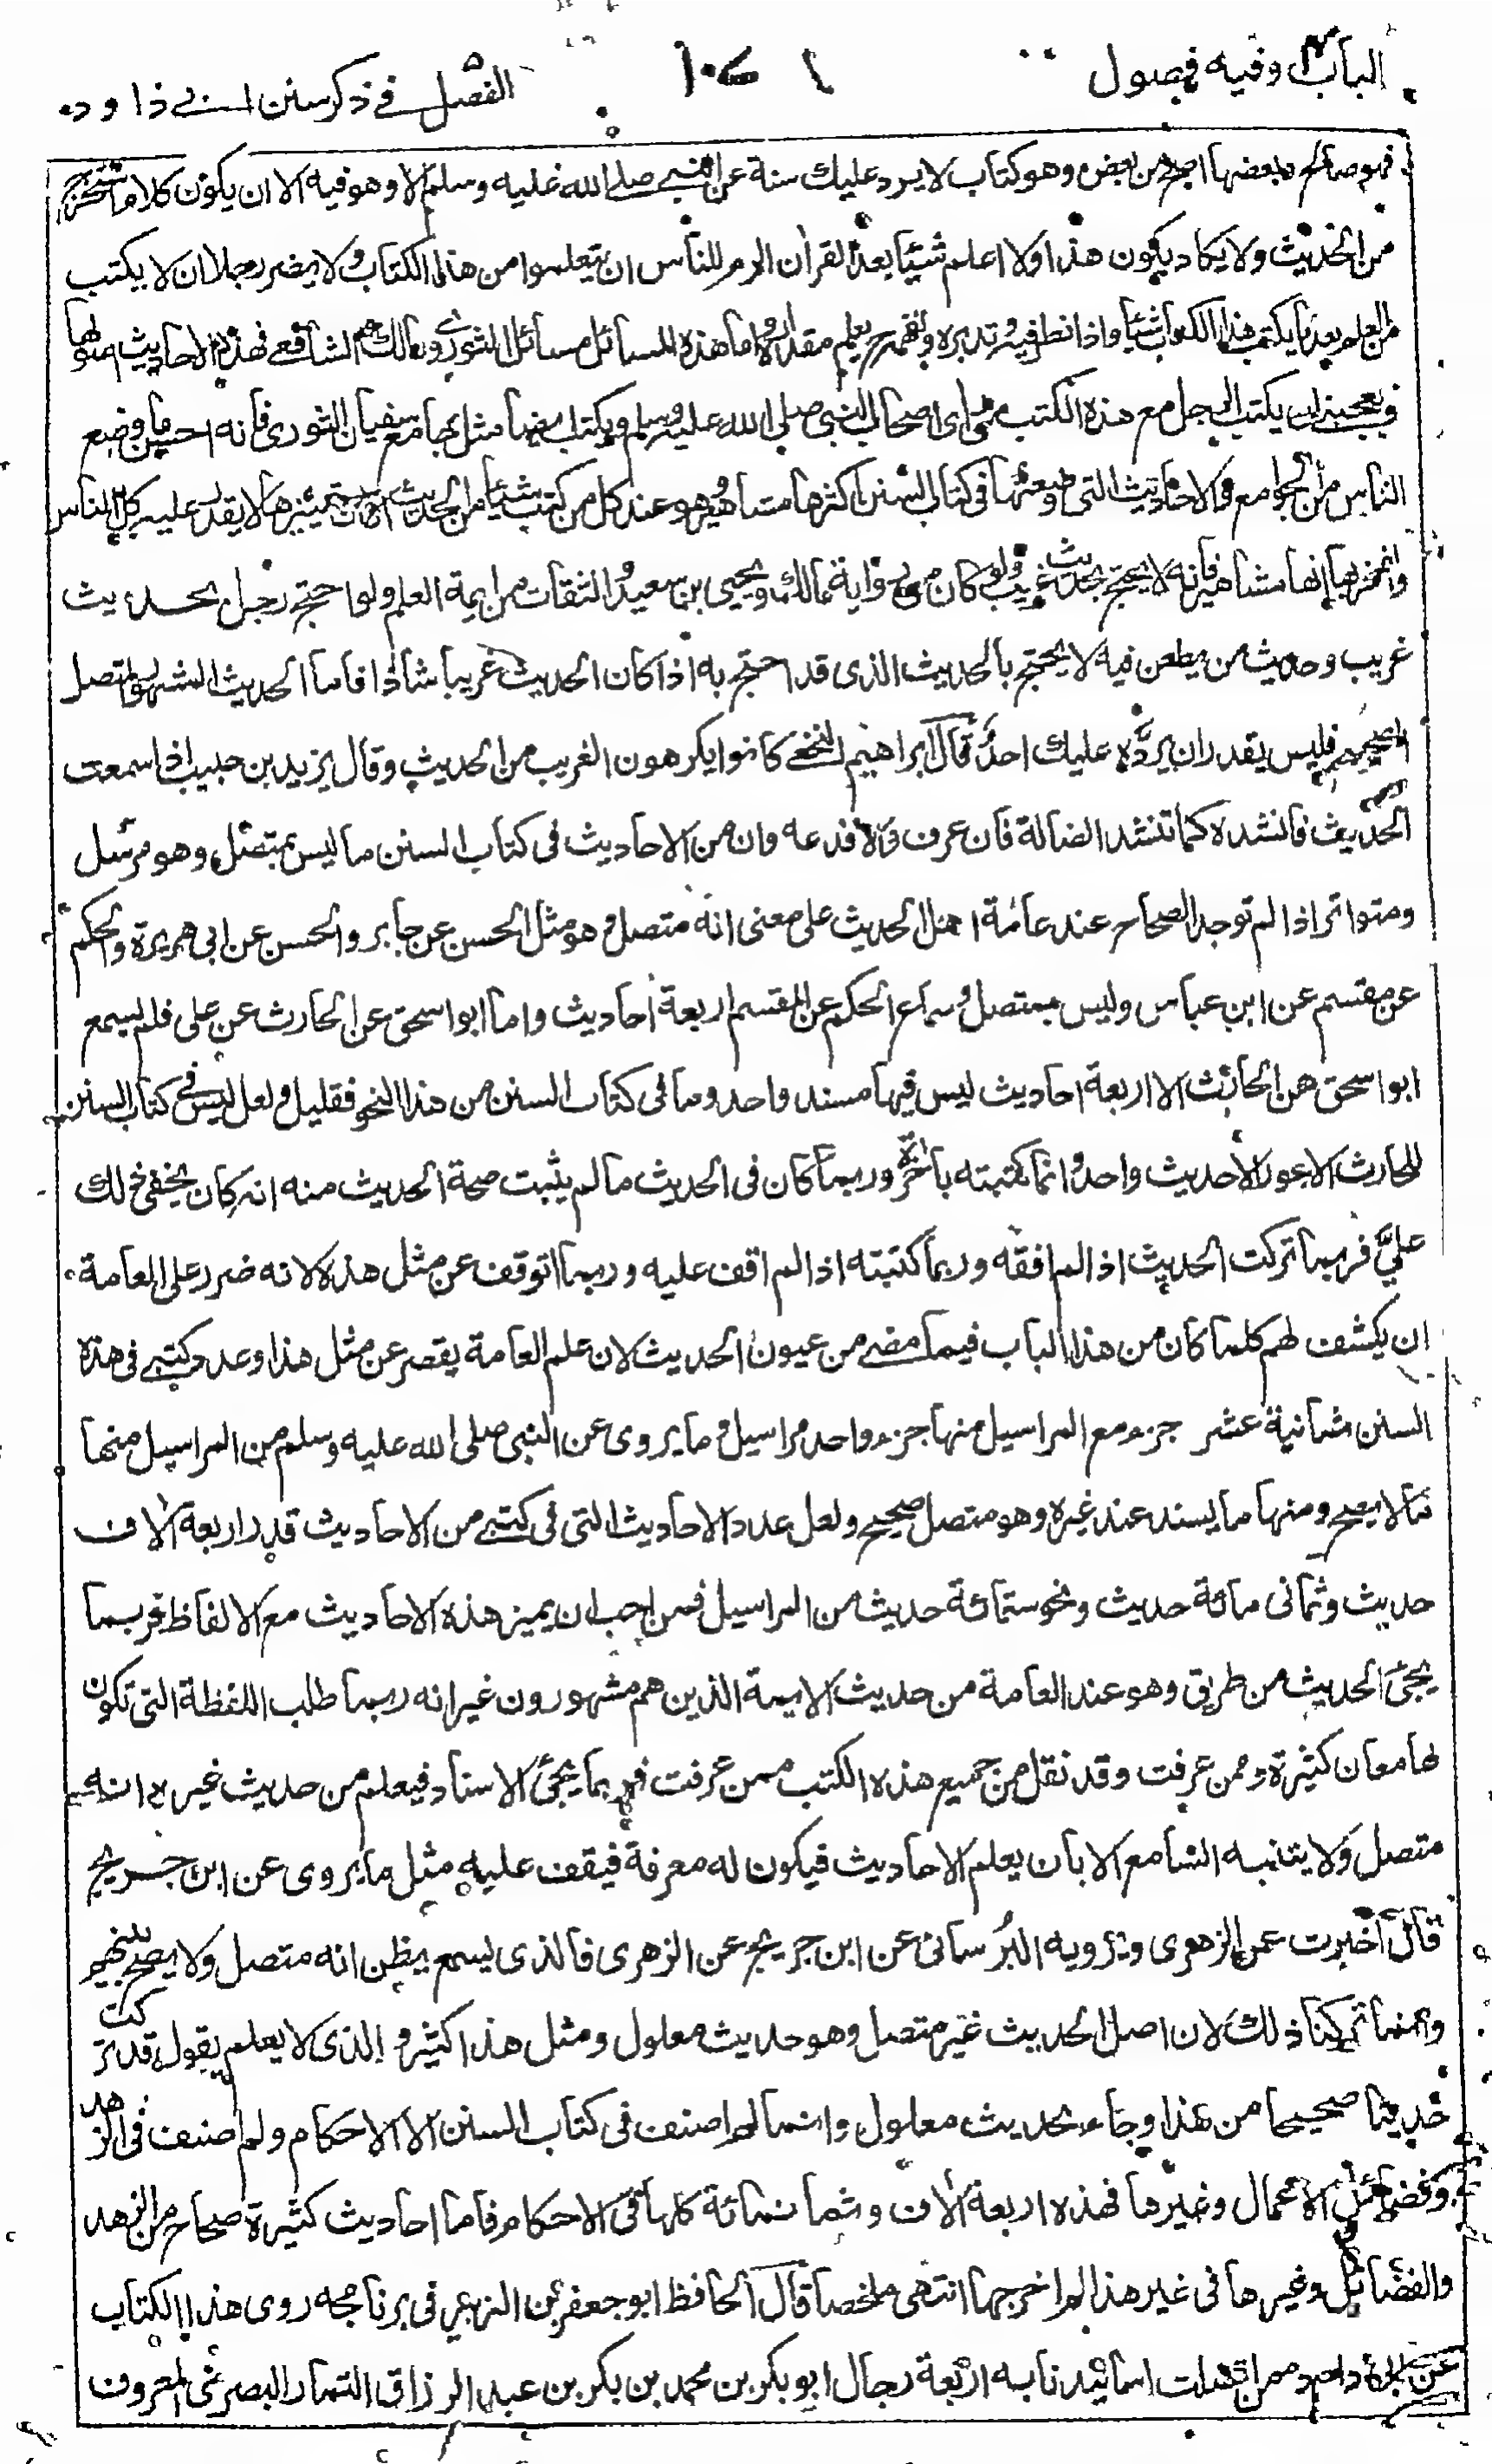 الباب وفيه فصول
١٠٧
الفصل في ذكر سنن ابي داود
فهو صالح وبعضها اصح من بعض وهو كتاب لا يرد عليك سنة عن النبي صلى الله عليه وسلم الا وهو فيه الا ان يكون كلاما استخرج
من الحديث ولا يكاد يكون هذا ولا اعلم شيئا بعد القرآن الزم للناس ان يتعلموا من هذا الكتاب ولا يضر رجلا ان لا يكتب
من العلم بعد ما يكتب هذا الكتاب شيئا واذا نظر فيه وتدبره وتفهمه يعلم مقداره واما هذه المسائل مسائل الثوري ومالك والشافعي فهذه الاحاديث اصولها
ويعجبني ان يكتب الرجل مع هذه الكتب من راى اصحاب النبي صلى الله عليه وسلم ويكتب ايضا مثل جامع سفيان الثوري فانه احسن ما وضع
الناس من الجوامع والاحاديث التي وضعتها في كتاب السنن اكثرها مشاهير وهو عند كل من كتب شيئا من الحديث الا ان تمييزها لا يقدر عليه كل الناس
والفخر بها انها مشاهير فانه لا يحتج بحديث غريب ولو كان من رواية مالك ويحيى بن سعيد والثقات من ايمة العلم ولو احتج رجل بحديث
غريب وحديث من يطعن فيه لا يحتج بالحديث الذي قد احتج به اذا كان الحديث غريبا شاذا فاما الحديث المشهور المتصل
الصحيح فليس يقدر ان يرده عليك احد قال ابراهيم النخعي كانوا يكرهون الغريب من الحديث وقال يزيد بن حبيب اذا سمعت
الحديث فانشده كما تنشد الضالة فان عرف والا فدعه وان من الاحاديث في كتاب السنن ما ليس بمتصل وهو مرسل
ومتواتر اذا لم توجد الصحاح عند عامة اهل الحديث على معنى انه متصل وهو مثل الحسن عن جابر والحسن عن ابي هريرة والحكم
عن مقسم عن ابن عباس وليس بمتصل وسماع الحكم عن المقسم اربعة احاديث واما ابو اسحق عن الحارث عن على فلم يسمع
ابو اسحق من الحارث الا اربعة احاديث ليس فيها مسند واحد وما في كتاب السنن من هذا النحو فقليل ولعل ليس في كتاب السنن
للحارث الاعور الا حديث واحد وانما كتبته بآخرة وربما كان في الحديث ما لم يثبت صحة الحديث منه انه كان يخفى ذلك
علي فربما تركت الحديث اذا لم افقه وربما كتبته اذا لم اقف عليه وربما اتوقف عن مثل هذه لانه ضرر على العامة
ان يكشف لهم كلما كان من هذا الباب فيما مضى من عيون الحديث لان علم العامة يقصر عن مثل هذا وعدد كتبي في هذه
السنن ثمانية عشر جزء مع المراسيل منها جزء واحد مراسيل وما يروى عن النبي صلى الله عليه وسلم من المراسيل منها
ما لا يصح ومنها ما يسند عند غيره وهو متصل صحيح ولعل عدد الاحاديث التي في كتبي من الاحاديث قدر اربعة آلاف
حديث وثماني مائة حديث ونحو ستمائة حديث من المراسيل فمن احب ان يميز هذه الاحاديث مع الالفاظ فربما
يجئ الحديث من طريق وهو عند العامة من حديث الايمة الذين هم مشهورون غير انه ربما طلب اللفظة التي تكون
لها معان كثيرة وممن عرفت وقد نقل من جميع هذه الكتب ممن عرفت فربما يجئ الاسناد فيعلم من حديث غيره انه
متصل ولا يتنبه السامع الا بان يعلم الاحاديث فيكون له معرفة فيقف عليه مثل ما يروى عن ابن جريج
قال اخبرت عن الزهري ويرويه البرساني عن ابن جريج عن الزهري فالذي يسمع يظن انه متصل ولا يصح بينهم
وانما تركنا ذلك لان اصل الحديث غير متصل وهو حديث معلول ومثل هذا كثير والذي لا يعلم يقول قد تركت
حديثا صحيحا من هذا وجاء بحديث معلول وانما لم اصنف في كتاب السنن الا الاحكام ولم اصنف في الزهد
وفضائل الاعمال وغيرها فهذه اربعة آلاف وثمانمائة كلها في الاحكام فاما احاديث كثيرة صحاح من الزهد
والفضائل وغيرها في غير هذا لم اخرجها انتهى ملخصا قال الحافظ ابو جعفر بن الزبير في برنامجه روى هذا الكتاب
عن ابي داود ممن اتصلت اسانيدنا به اربعة رجال ابو بكر بن محمد بن بكر بن عبد الرزاق التمار البصري المعروف